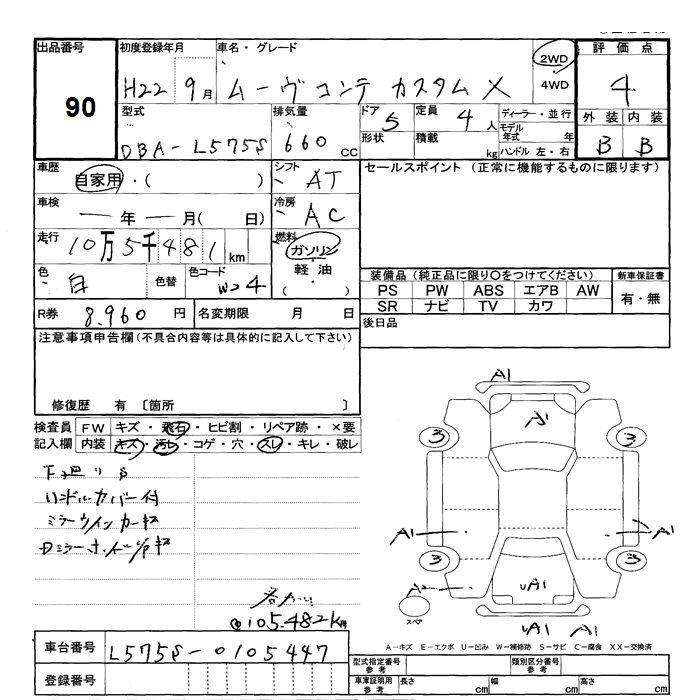 出品番号
90
初度登録年月 車名・グレード
H22 9月 ムーヴ コンテ カスタム X
2WD
4WD
評価点
4
型式 排気量 ドア 定員
DBA-L575S 660cc 5 4人
形状 積載 kg
ディーラー・並行
モデル年式 年
ハンドル 左・右
外装 内装
B B
車歴 自家用・( )
シフト AT
車検 ― 年 ― 月( 日)
冷房 AC
走行 10万5千481km
燃料 ガソリン・軽油・( )
色 白 色替 色コード W24
R券 8,960円 名変期限 月 日
セールスポイント(正常に機能するものに限ります)
装備品(純正品に限り○をつけてください)
PS PW ABS エアB AW
SR ナビ TV カワ
新車保証書
有・無
後日品
注意事項申告欄(不具合内容等は具体的に記入して下さい)
修復歴 有〔箇所 〕
検査員記入欄
FW キズ・飛石・ヒビ割・リペア跡・×要
内装 キズ・汚レ・コゲ・穴・スレ・キレ・破レ
下廻りS
ハンドルカバー付
ミラーウインカーキズ
105.482km
A1
A1
3 3
A1 A1
3 3
A2
UA1
スペア
U1 A1
A-キズ E-エクボ U-凹み W-補修跡 S-サビ C-腐食 XX-交換済
車台番号 L575S-0105447
登録番号
型式指定番号 参考 類別区分番号 参考
車庫証明用 参考 長さ cm 幅 cm 高さ cm